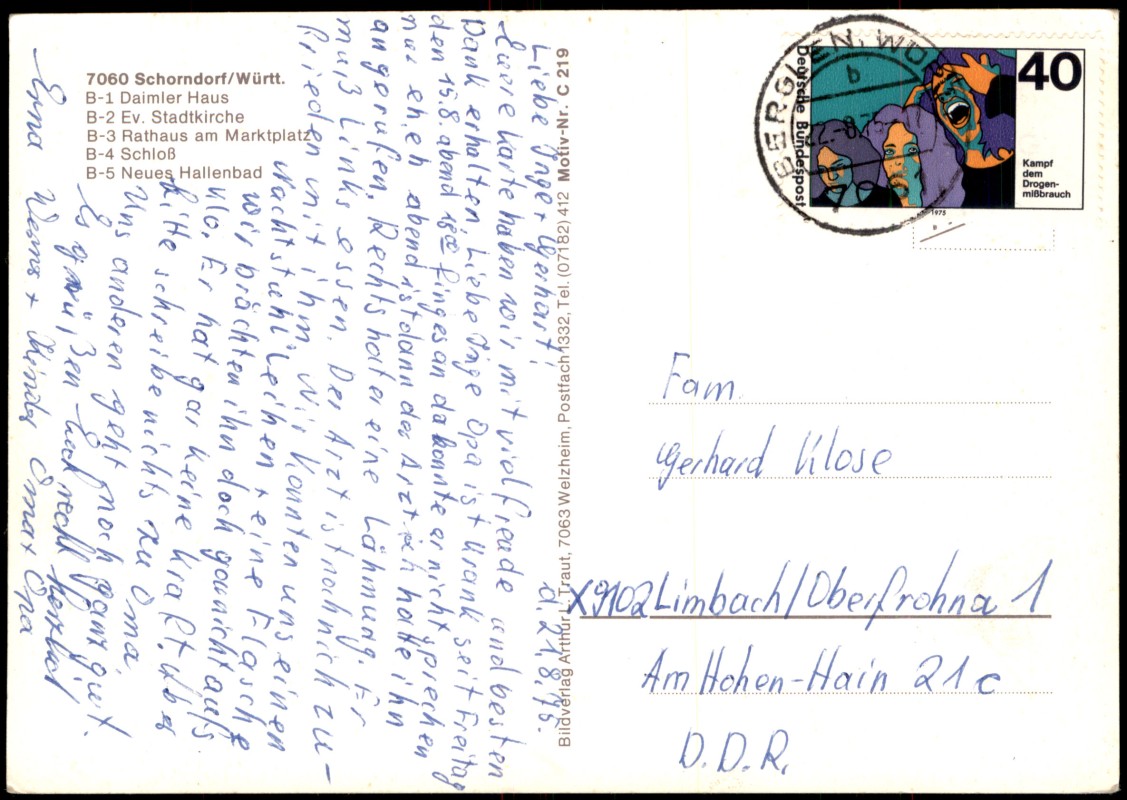 7060 Schorndorf/Württ.
B-1 Daimler Haus
B-2 Ev. Stadtkirche
B-3 Rathaus am Marktplatz
B-4 Schloß
B-5 Neues Hallenbad
d. 21.8.75.
Liebe Inge + Gerhart!
Euere Karte haben wir mit viel Freude und besten
Dank erhalten, Liebe Inge Opa ist krank seit Freitag
den 15.8 abend 18⁰⁰ fing es an da konte er nicht sprechen
nur abend ist dann der Arzt ich hatte ihn
angerufen, Rechts hat er eine Lähmung. Er
muß Links essen. Der Arzt ist noch nich zu-
frieden mit ihm. Wir konten uns einen
Nachtstuhl Leihen + eine Flasche
wir brächten ihn doch garnicht aufs
Klo. Er hat gar keine Kraft. Aber
bitte schreibe nichts zu Oma.
Uns anderen geht noch ganz gut.
Es grüßen Euch recht herzlich
Erna Werner + Kinder Oma + Opa
Bildverlag Arthur F. Traut, 7063 Welzheim, Postfach 1332, Tel. (07182) 412 Motiv-Nr. C 219
BERGLEN, WÜ
b
22.-8.-
7
Deutsche Bundespost
40
Kampf
dem
Drogen-
mißbrauch
1975
Fam.
Gerhard Klose
X9102 Limbach/Oberfrohna 1
Am Hohen-Hain 21c
D.D.R.